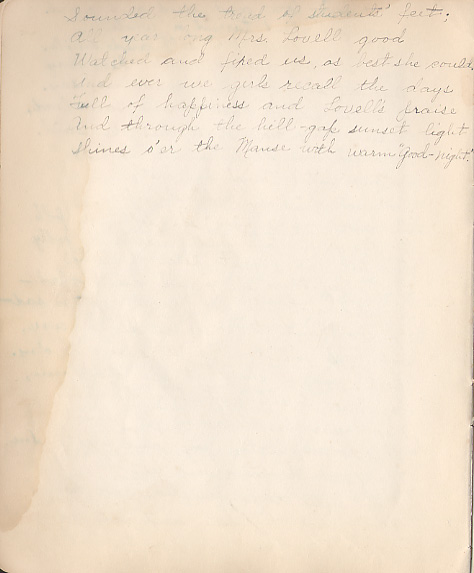 Sounded the tread of students' feet;
All year long Mrs. Lovell good
Watched and fixed us, as best she could,
And ever we girls recall the days
Full of happiness and Lovell's praise
And through the hill-gap sunset light
Shines o'er the Manse with warm "Good-night."